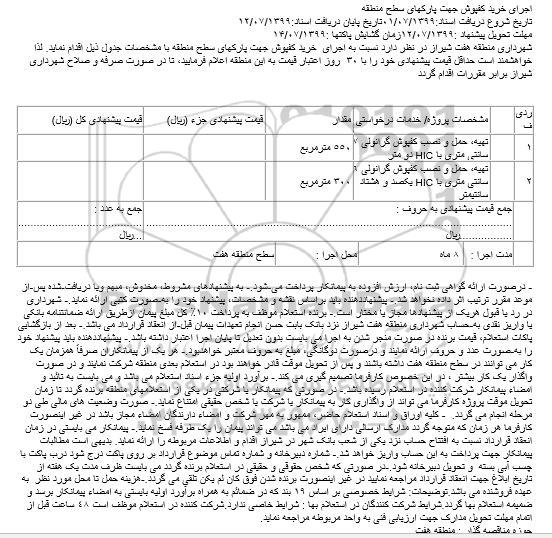 اجرای خرید کفپوش جهت پارکهای سطح منطقه
تاریخ شروع دریافت اسناد:۰۱/۰۷/۱۳۹۹تاریخ پایان دریافت اسناد:۱۲/۰۷/۱۳۹۹
مهلت تحویل پیشنهاد :۱۲/۰۷/۱۳۹۹زمان گشایش پاکتها :۱۴/۰۷/۱۳۹۹
شهرداری منطقه هفت شیراز در نظر دارد نسبت به اجرای خرید کفپوش جهت پارکهای سطح منطقه با مشخصات جدول ذیل اقدام نماید. لذا
خواهشمند است حداقل قیمت پیشنهادی خود را با ۳۰ روز اعتبار قیمت به این منطقه اعلام فرمایید، تا در صورت صرفه و صلاح شهرداری
شیراز برابر مقررات اقدام گردد
ردی
ف
مشخصات پروژه/ خدمات درخواستی
مقدار
قیمت پیشنهادی جزء (ریال)
قیمت پیشنهادی کل (ریال)
۱
تهیه، حمل و نصب کفپوش گرانولی ۷
سانتی متری با HIC دو متر
۵۵۰ مترمربع
۲
تهیه، حمل و نصب کفپوش گرانولی ۶
سانتی متری با HIC یکصد و هشتاد
سانتیمتر
۳۰۰ مترمربع
جمع قیمت پیشنهادی به حروف :
ریال
جمع به عدد :
ریال
مدت اجرا :
۸ ماه
محل اجرا :
سطح منطقه هفت
ـ درصورت ارائه گواهی ثبت نام، ارزش افزوده به پیمانکار پرداخت می‌شود.ـ به پیشنهادهای مشروط، مخدوش، مبهم ویا دریافت‌شده پس‌از
موعد مقرر ترتیب اثر داده نخواهد شد.ـ پیشنهاددهنده باید براساس نقشه و مشخصات، پیشنهاد خود را به‌صورت کتبی ارائه نماید.ـ شهرداری
در رد یا قبول هریک از پیشنهادها مجاز یا مختار است.ـ برنده استعلام موظف به پرداخت ۱۰٪ کل مبلغ پیمان ازطریق ارائه ضمانتنامه بانکی
یا واریز نقدی به‌حساب شهرداری منطقه هفت شیراز نزد بانک بابت حسن انجام تعهدات پیمان قبل‌از انعقاد قرارداد می باشد.ـ بعد از بازگشایی
پاکات استعلام، قیمت برنده در صورت منجر شدن به اجرا می بایست بدون تعدیل تا پایان اجرا اعتبار داشته باشد.ـ پیشنهاددهنده باید پیشنهاد خود
را به‌صورت عدد و حروف ارائه نمایند و درصورت دوگانگی، مبلغ به حروف معتبر خواهدبود.ـ هر یک از پیمانکاران صرفاً همزمان یک
کار می توانند در سطح منطقه هفت داشته باشند و پس از تحویل موقت قادر خواهند بود در استعلام بعدی منطقه شرکت نمایند و در صورت
واگذار یک کار بیشتر ، در این خصوص کارفرما تصمیم گیری می کند.ـ برآورد اولیه جزء اسناد استعلام می باشد و می بایست به تائید و
امضاء پیمانکار شرکت کننده در استعلام رسیده باشد.ـ در صورتی که پیمانکار یا شرکتی در یکی از استعلامهای منطقه برنده گردد تا زمان
تحویل موقت پروژه کارفرما می تواند از واگذاری کار به پیمانکار یا شرکت یا شخص حقیقی امتناع نماید.ـ صورت وضعیت های مالی طی دو
مرحله انجام می گردند. ـ کلیه اوراق و اسناد استعلام حاضر، ممهور به مهر شرکت و امضاء دارندگان امضاء مجاز باشد در غیر اینصورت
کارفرما هر زمان که متوجه گردد مدارک ارسالی دارای ایراد می باشد می تواند پیمان را یک طرفه فسخ نماید.ـ پیمانکار می بایستی در زمان
انعقاد قرارداد نسبت به افتتاح حساب نزد یکی از شعب بانک شهر در شیراز اقدام و اطلاعات مربوطه را ارائه نماید. بدیهی است مطالبات
پیمانکار جهت پرداخت به این حساب واریز خواهد شد.ـ شماره دبیرخانه و شماره تماس موضوع قرارداد بر روی پاکت درج شود درب پاکت با
چسب آبی بسته و تحویل دبیرخانه شود.ـدر صورتی که شخص حقوقی و حقیقی در استعلام برنده گردد می بایست ظرف مدت یک هفته از
تاریخ ابلاغ جهت انعقاد قرارداد مراجعه نمایید در غیر اینصورت برنده شدن فوق کان لم یکن تلقی می گردد.ـهزینه حمل تا محل مورد نظر به
عهده فروشنده می باشد.توضیحات: شرایط خصوصی بر اساس ۱۹ بند که در ضمائم به همراه برآورد اولیه بایستی به امضاء پیمانکار برسد و
ضمیمه استعلام بها گردد.شرایط شرکت کنندگان در استعلام بها : شرایط خاصی ندارد.شرکت کننده در استعلام موظف است ۴۸ ساعت قبل از
اتمام مهلت تحویل مدارک جهت ارزیابی فنی به واحد مربوطه مراجعه نماید.
حوزه مناقصه گذار : منطقه هفت